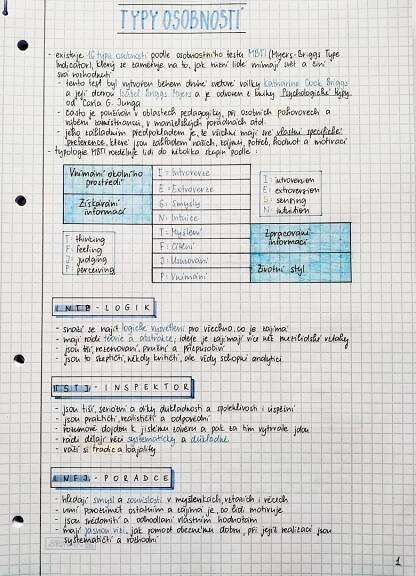 TYPY OSOBNOSTÍ
- existuje 16 typů osobnosti podle osobnostního testu MBTI (Myers-Briggs Type
Indicator), který se zaměřuje na to, jak různí lidé vnímají svět a činí
svá rozhodnutí
- tento test byl vytvořen během druhé světové války Katharine Cook Briggs
a její dcerou Isabel Briggs Myers a je odvozen z knihy Psychologické typy
od Carla G. Junga
- často je používán v oblastech pedagogiky, při osobních pohovorech a
výběru zaměstnanců, v manželských poradnách atd.
- jeho základním předpokladem je, že všichni mají své vlastní specifické
preference, které jsou základem našich zájmů, potřeb, hodnot a motivací
- typologie MBTI rozděluje lidi do několika skupin podle:
Vnímání okolního
prostředí
I: Introverze
E: Extroverze
I: introversion
E: extroversion
S: sensing
N: intuition
Získávání
informací
S: Smysly
N: Intuice
T: thinking
F: feeling
J: judging
P: perceiving
T: Myšlení
F: Cítění
Zpracování
informací
J: Usuzování
P: Vnímání
Životní styl
INTP - LOGIK
- snaží se najít logické vysvětlení pro všechno, co je zajímá
- mají rádi teorie a abstrakce, ideje je zajímají více než mezilidské vztahy
- jsou tiší, rezervovaní, pružní a přizpůsobiví
- jsou to skeptičtí, někdy kritičtí, ale vždy schopní analytici
ISTJ - INSPEKTOR
- jsou tiší, seriózní a díky důkladnosti a spolehlivosti i úspěšní
- jsou praktičtí, realističtí a odpovědní
- rozumově dojdou k jistému závěru a pak za ním vytrvale jdou
- rádi dělají věci systematicky a důkladně
- váží si tradic a loajality
INFJ - PORADCE
- hledají smysl a souvislosti v myšlenkách, vztazích i věcech
- umí porozumět ostatním a zajímá je, co lidi motivuje
- jsou svědomití a odhodlaní vlastním hodnotám
- mají jasnou vizi, jak pomoct obecnému dobru, při její realizaci jsou
systematičtí a rozhodní
1